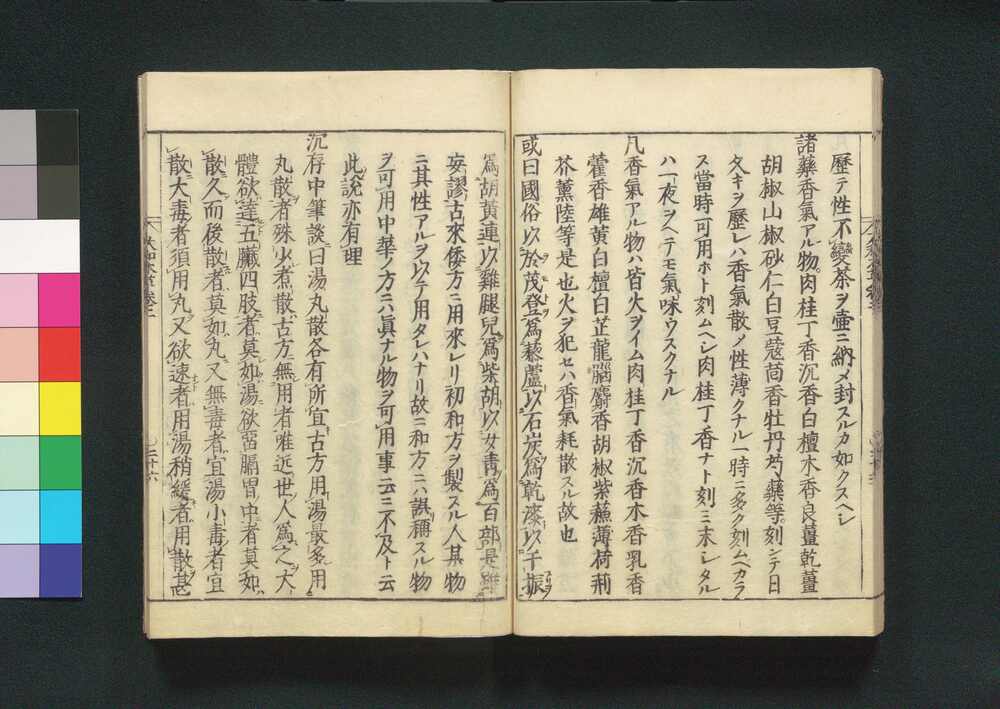 歷テ性不變茶ヲ壷ニ納メ封スルカ如クスヘシ
諸藥香氣アル物肉桂丁香沉香白檀木香良薑乾薑
胡椒山椒砂仁白豆蔻茴香牡丹芍藥等刻シテ日
久キヲ歷レハ香氣散メ性薄クナル一時ニ多ク刻ムヘカラ
ス當時可用ホト刻ムヘシ肉桂丁香ナト刻ミ末シタル
ハ一夜ヲヘテモ氣味ウスクナル
凡香氣アル物ハ皆火ヲイム肉桂丁香沉香木香乳香
藿香雄黃白檀白芷龍腦麝香胡椒紫蘓薄荷荊
芥薰陸等是也火ヲ犯セハ香氣耗散スル故也
或曰國俗以於茂登爲藜蘆以石炭爲乾漆以千振
爲胡黃連以雞腿兒爲柴胡以女靑爲百部是雖
妄謬古來倭方ニ用來レリ初和方ヲ製スル人其物
ニ其性アルヲ以テ用タレハナリ故ニ和方ニハ誤稱スル物
ヲ可用中華ノ方ニハ眞ナル物ヲ可用事云ニ不及ト云
此說亦有理
沉存中筆談曰湯丸散各有所宜古方用湯最多用
丸散者殊少煮散古方無用者唯近世人爲之大
體欲達五臟四肢者莫如湯欲畱膈胃中者莫如
散久而後散者莫如丸又無毒者宜湯小毒者宜
散大毒者須用丸又欲速者用湯稍緩者用散甚